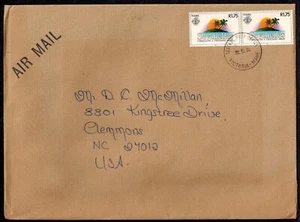 AIR MAIL
R1.75 R1.75
Mr. D. C McMillan
3801 Kingstree Drive,
Clemmons
NC 27012
U.S.A.